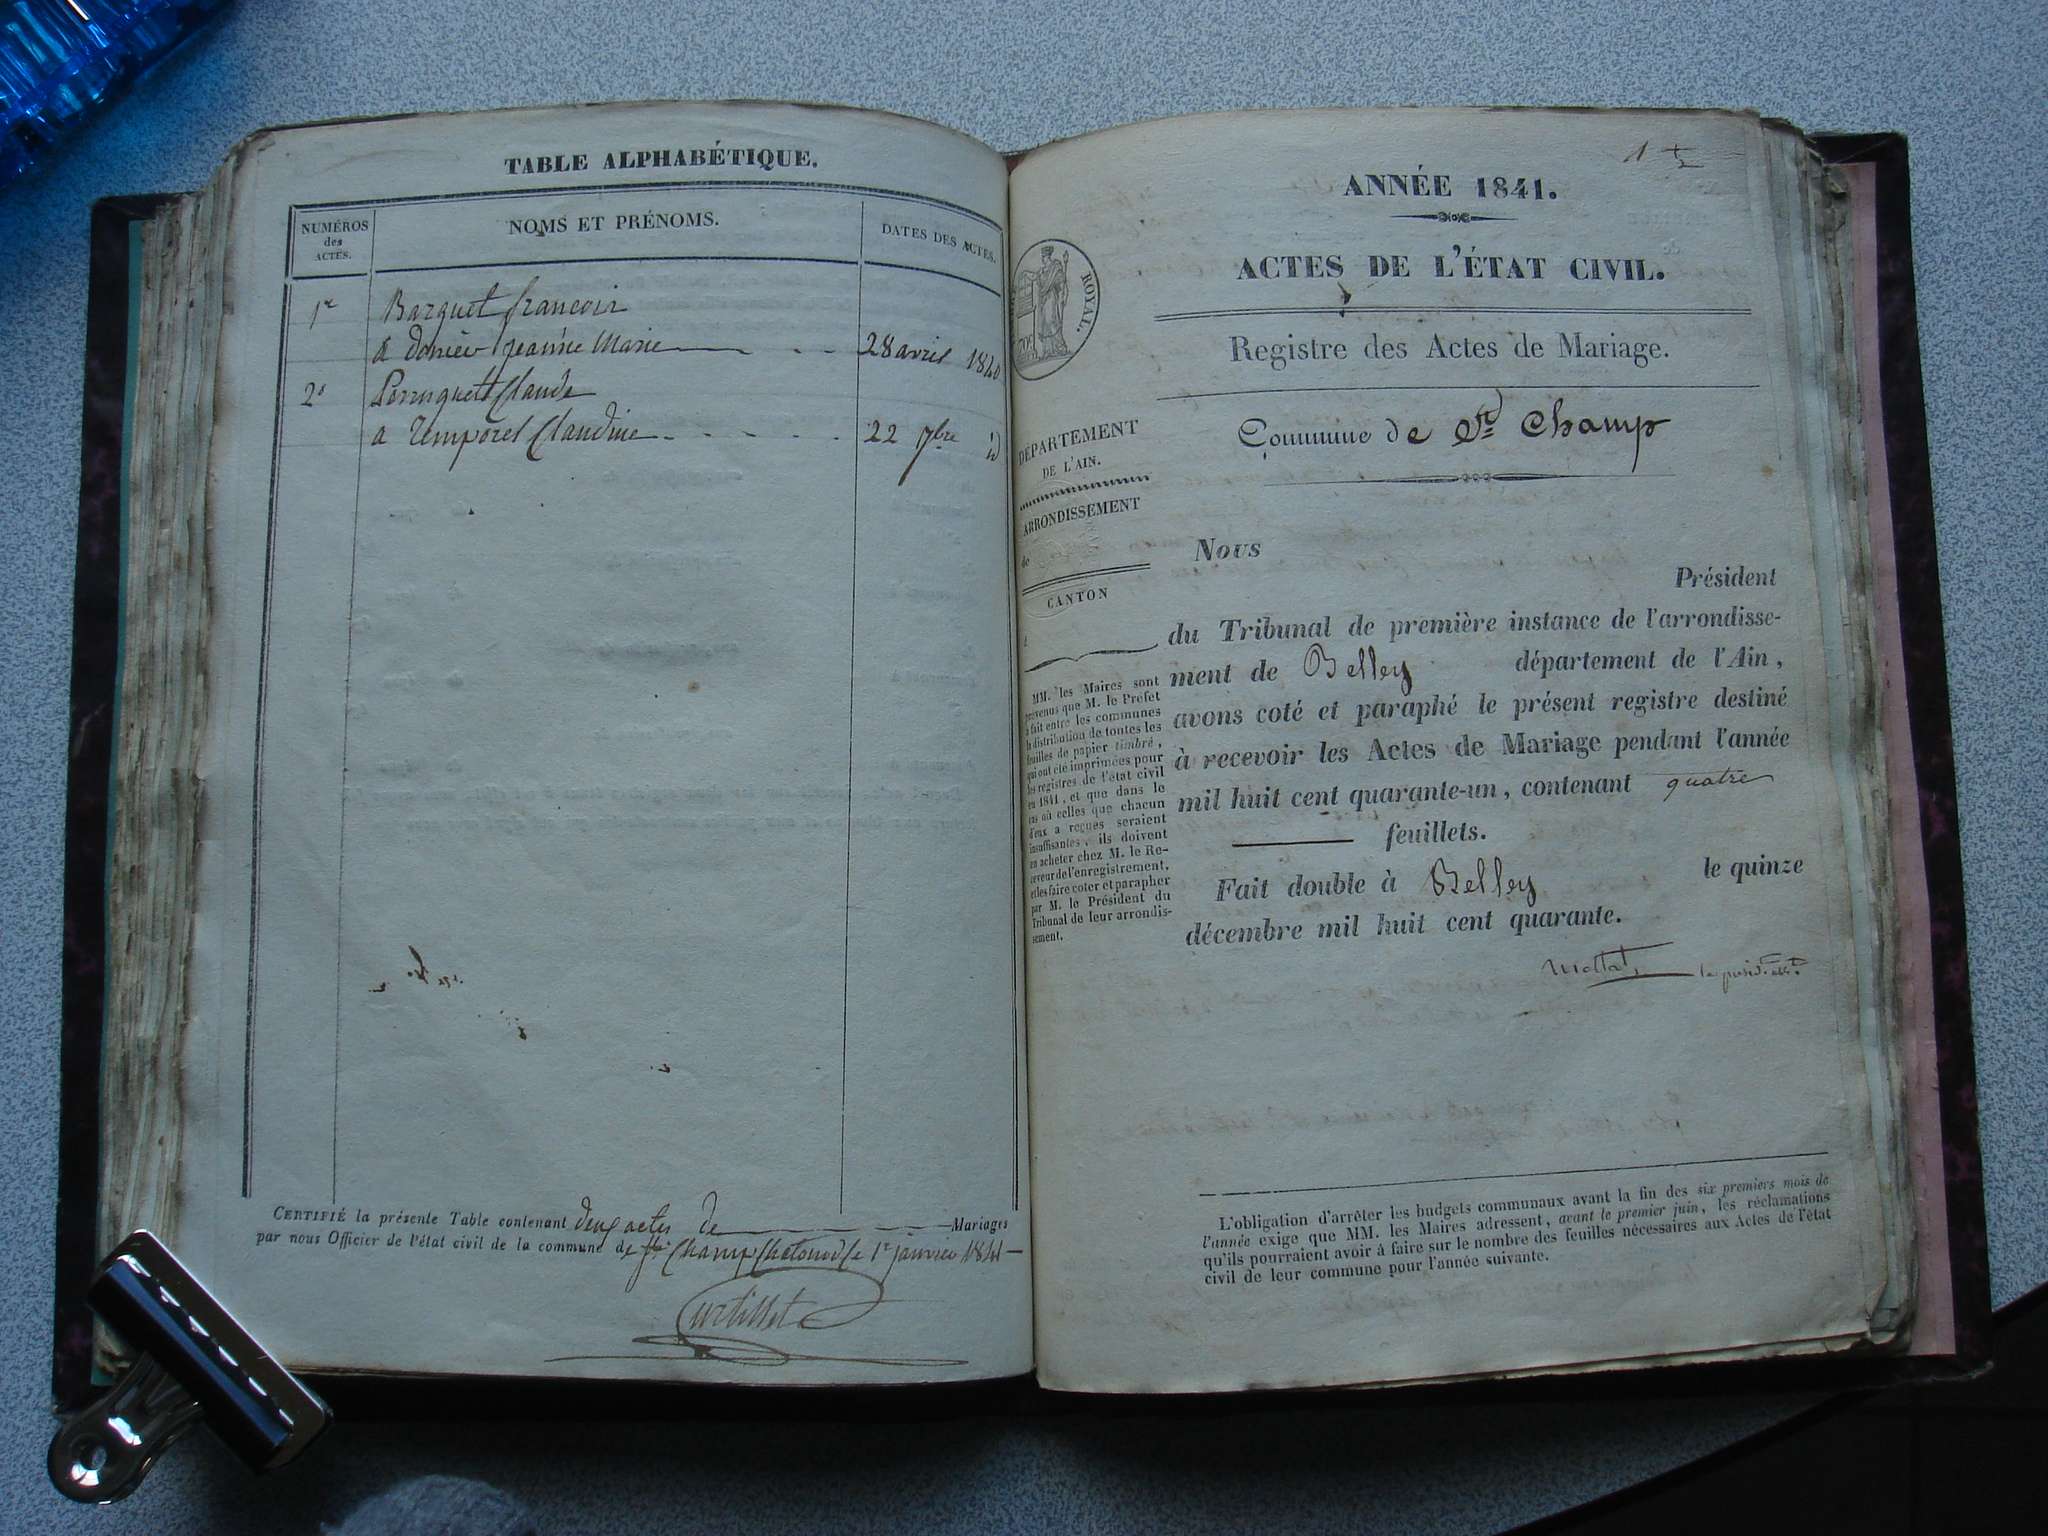 TABLE ALPHABÉTIQUE.
NUMÉROS
des
ACTES.
NOMS ET PRÉNOMS.
DATES DES ACTES.
1er
Barquet françois
à jeanne Marie 28 avril 1840
2e
Perruquet Claude
a Temporel Claudine 22 7bre id
CERTIFIÉ la présente Table contenant deux actes de Mariages
par nous Officier de l'état civil de la commune de Ste Champ Chatonod le 1er janvier 1841
Curtillet
1
ANNÉE 1841.
ACTES DE L'ÉTAT CIVIL.
ROYAL.
Registre des Actes de Mariage.
Commune de Ste Champ
DÉPARTEMENT
DE L'AIN.
ARRONDISSEMENT
de
CANTON
MM. les Maires sont
prévenus que M. le Préfet
a fait entre les communes
la distribution de toutes les
feuilles de papier timbré,
qui ont été imprimées pour
les registres de l'état civil
en 1841, et que dans le
cas où celles que chacun
d'eux a reçues seraient
insuffisantes, ils doivent
en acheter chez M. le Re-
ceveur de l'enregistrement,
et les faire coter et parapher
par M. le Président du
Tribunal de leur arrondis-
sement.
Nous
Président
du Tribunal de première instance de l'arrondisse-
ment de Belley département de l'Ain,
avons coté et paraphé le présent registre destiné
à recevoir les Actes de Mariage pendant l'année
mil huit cent quarante-un, contenant quatre
feuillets.
Fait double à Belley le quinze
décembre mil huit cent quarante.
L'obligation d'arrêter les budgets communaux avant la fin des six premiers mois de
l'année exige que MM. les Maires adressent, avant le premier juin, les réclamations
qu'ils pourraient avoir à faire sur le nombre des feuilles nécessaires aux Actes de l'état
civil de leur commune pour l'année suivante.